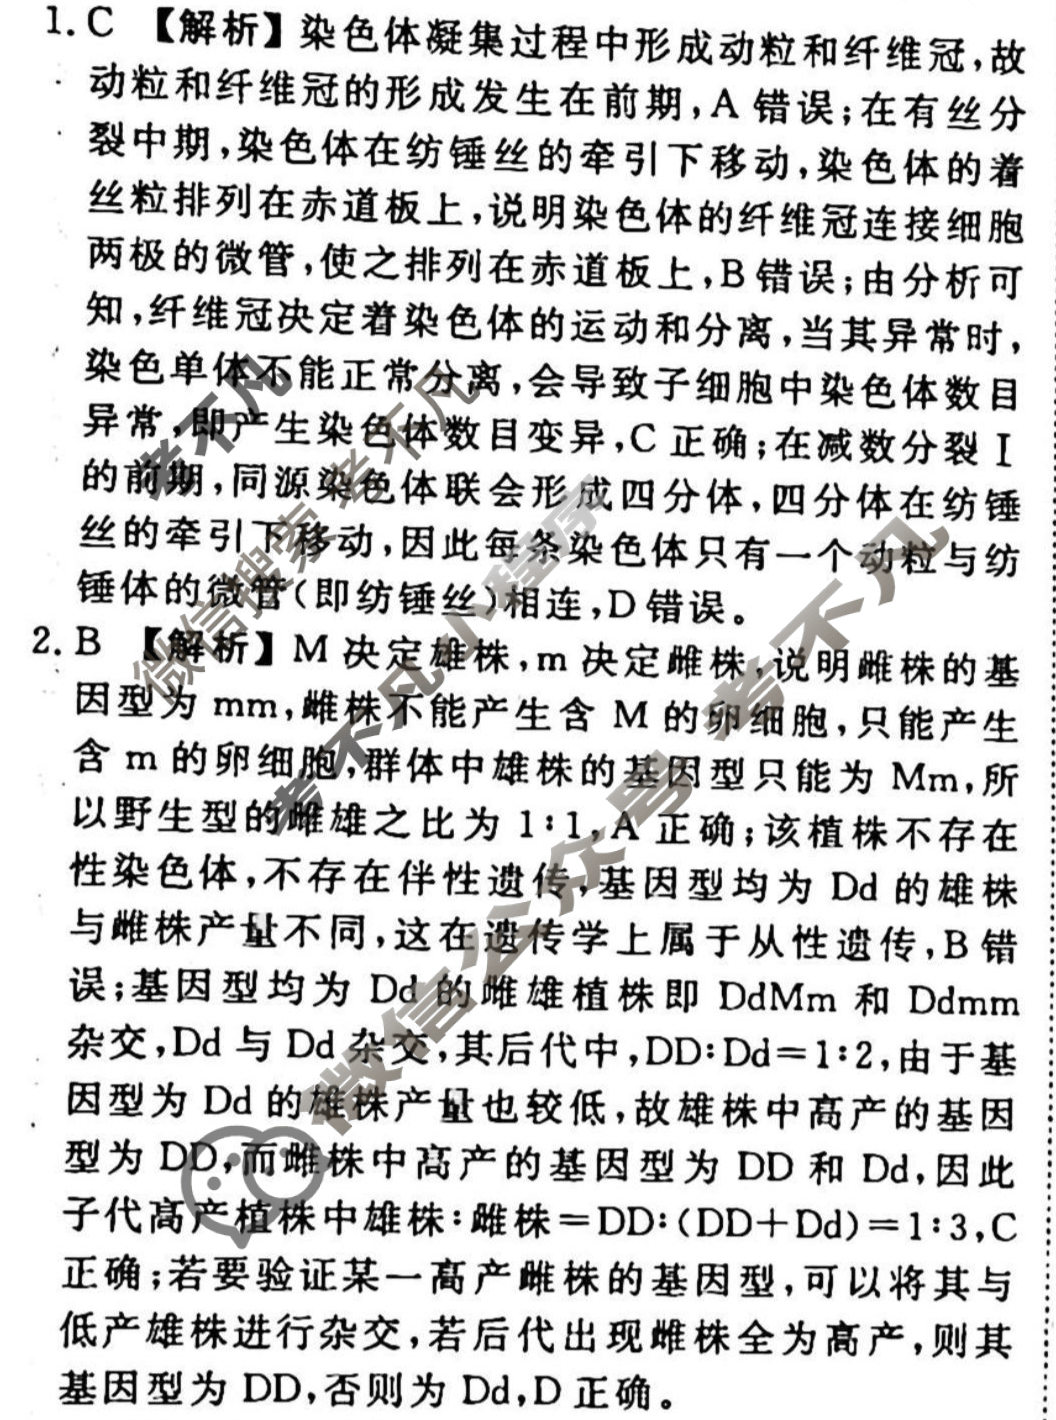 1. C 【解析】染色体凝集过程中形成动粒和纤维冠,故
动粒和纤维冠的形成发生在前期,A 错误;在有丝分
裂中期,染色体在纺锤丝的牵引下移动,染色体的着
丝粒排列在赤道板上,说明染色体的纤维冠连接细胞
两极的微管,使之排列在赤道板上,B 错误;由分析可
知,纤维冠决定着染色体的运动和分离,当其异常时,
染色单体不能正常分离,会导致子细胞中染色体数目
异常,即产生染色体数目变异,C 正确;在减数分裂 I
的前期,同源染色体联会形成四分体,四分体在纺锤
丝的牵引下移动,因此每条染色体只有一个动粒与纺
锤体的微管(即纺锤丝)相连,D 错误。
2. B 【解析】M 决定雄株,m 决定雌株,说明雌株的基
因型为 mm,雌株不能产生含 M 的卵细胞,只能产生
含 m 的卵细胞,群体中雄株的基因型只能为 Mm,所
以野生型的雌雄之比为 1:1,A 正确;该植株不存在
性染色体,不存在伴性遗传,基因型均为 Dd 的雄株
与雌株产量不同,这在遗传学上属于从性遗传,B 错
误;基因型均为 Dd 的雌雄植株即 DdMm 和 Ddmm
杂交,Dd 与 Dd 杂交,其后代中,DD:Dd=1:2,由于基
因型为 Dd 的雄株产量也较低,故雄株中高产的基因
型为 DD,而雌株中高产的基因型为 DD 和 Dd,因此
子代高产植株中雄株:雌株=DD:(DD+Dd)=1:3,C
正确;若要验证某一高产雌株的基因型,可以将其与
低产雄株进行杂交,若后代出现雌株全为高产,则其
基因型为 DD,否则为 Dd,D 正确。
考不凡
微信搜索 考不凡
考不凡小程序
微信公众号 考不凡